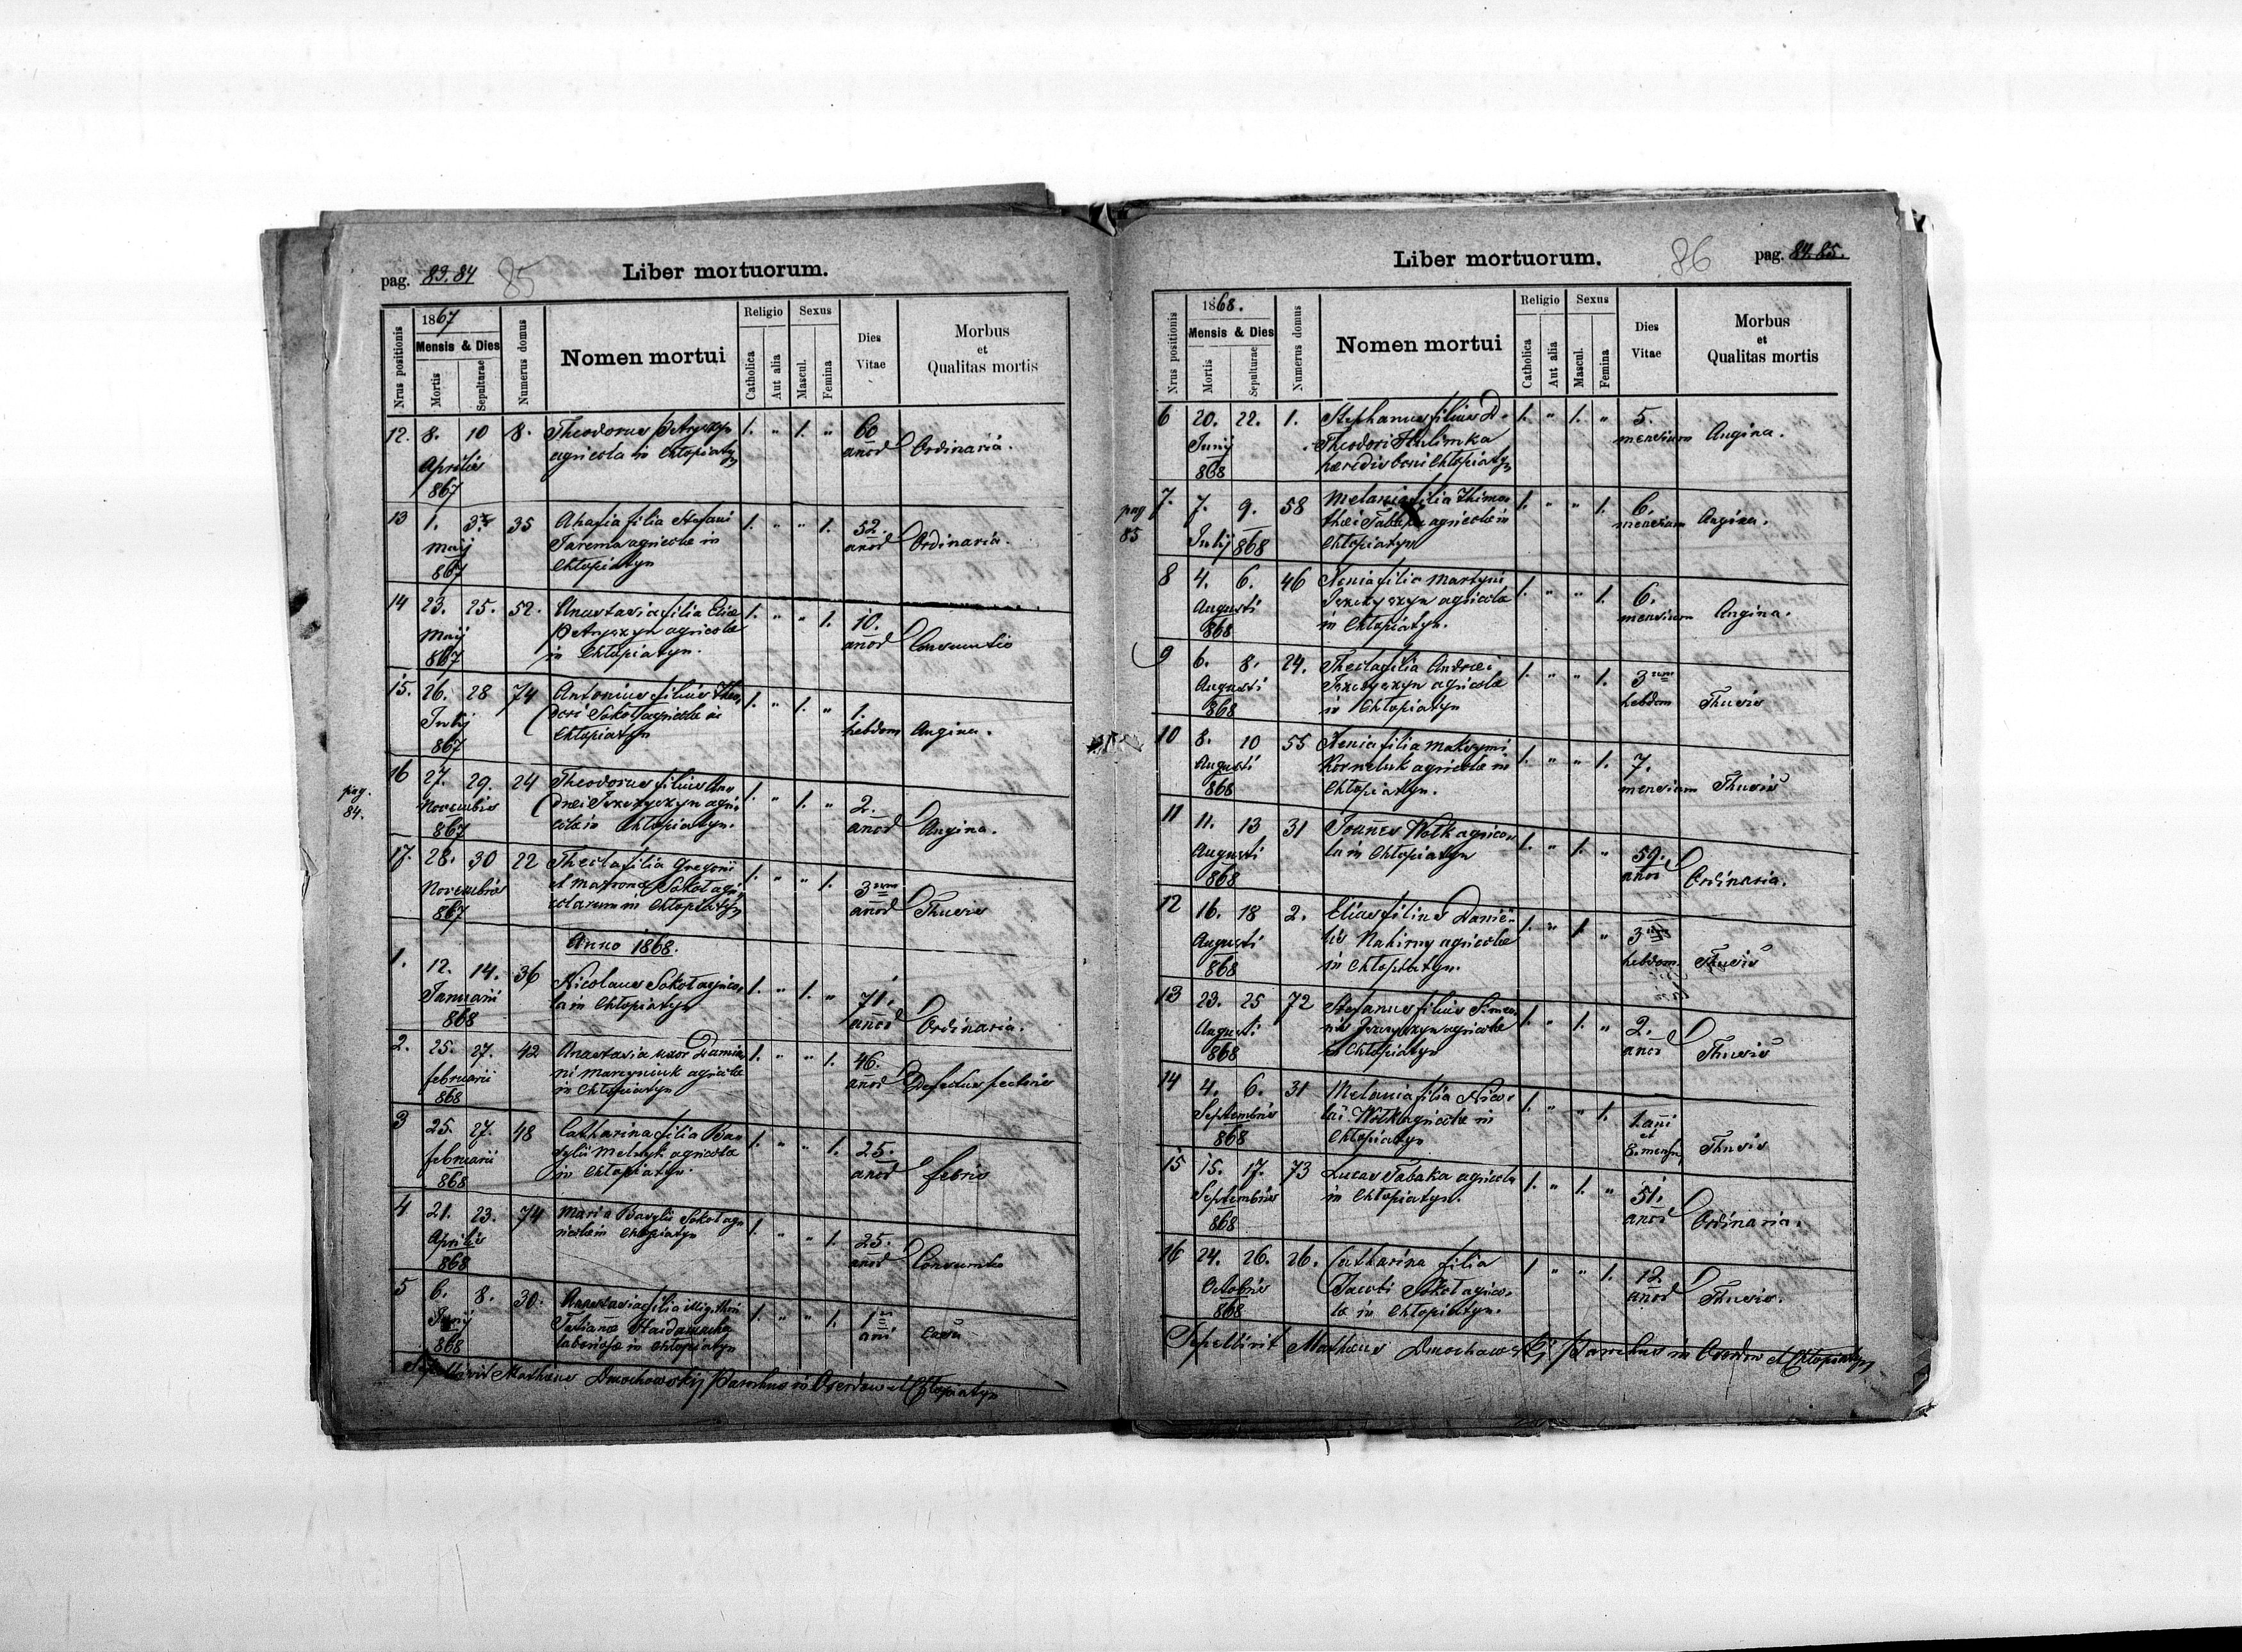 pag. 83.84 85 Liber mortuorum.
Nrus positionis
1867
Mensis & Dies
Mortis
Sepulturae
Numerus domus
Nomen mortui
Religio
Catholica
Aut alia
Sexus
Mascul.
Femina
Dies
Vitae
Morbus
et
Qualitas mortis
12. 8. 10 8. Theodorus Petryszyn 1. " 1. " 60
Aprilis agricola in Chłopiatyn anor Ordinaria.
867
13 1. 3. 35 Ahafia filia Stefani 1. " " 1. 52.
Maij Jarema agricolae in anor Ordinaria.
867 Chłopiatyn
14 23. 25. 52. Anastasia filia Eliae 1. " " 1. 10.
Maij Petryszyn agricolae anor Consumtio
867 in Chłopiatyn.
15. 26. 28 74 Antonius filius Theo- 1. " 1. " 1.
Julij dori Sokoł agricolae in hebdom Angina.
867 Chłopiatyn
pag.
84.
16 27. 29. 24 Theodorus filius An- 1. " 1. " 2.
Novembris agri- anor Angina.
867 colae in Chłopiatyn.
17. 28. 30 22 Thecla filia Gregorii 1. " " 1. 3um
Novembris et Matronae Sokoł agri- anor Thusis
867 colarum in Chłopiatyn
Anno 1868.
1. 12. 14. 36 Nicolaus Sokoł agrico- 1. " 1. " 71.
Januarii la in Chłopiatyn anor Ordinaria.
868
2. 25. 27. 42 Anastasia uxor Damia- 1. " " 1. 46.
februarii ni Marzyniuk agricolae anor Defectus pectoris
868 in Chłopiatyn
3 25. 27. 48 Catharina filia Ba- 1. " " 1. 25.
februarii sylii Melnyk agricolae anor febris
868 in Chłopiatyn.
4 21. 23. 74 Maria Basylii Sokoł ag- 1. " " 1. 25.
Aprilis ricolae in Chłopiatyn anor Consumtio
868
5 6. 8. 30. Anastasia filia illig. thori 1. " " 1. 1
Junij Tatianae in Chłopiatyn ani casu
868
Sepellivit Mathaeus Dmochowskij Parochus in Oserdow et Chłopiatyn
Liber mortuorum. 86 pag. 84.85.
Nrus positionis
1868.
Mensis & Dies
Mortis
Sepulturae
Numerus domus
Nomen mortui
Religio
Catholica
Aut alia
Sexus
Mascul.
Femina
Dies
Vitae
Morbus
et
Qualitas mortis
6 20. 22. 1. Stephanus filius D. 1. " 1. " 5.
Junij Theodori Hulimka mensium Angina.
868 haeredis boni Chłopiatyn
pag
85
7. 7. 9. 58 Melania filia Thimo- 1. " " 1. 6.
Julij 868 thei Tabaka agricolae in mensium Angina.
Chłopiatyn
8 4. 6. 46 Xenia filia Martyni 1. " " 1. 6.
Augusti agricolae mensium Angina.
868 in Chłopiatyn.
9 6. 8. 24. Thecla filia Andreei 1. " " 1. 3um
Augusti agricolae hebdom Thusis
868 in Chłopiatyn
10 8. 10 55 Xenia filia Maksymi 1. " " 1. 7.
Augusti Korneluk agricolae in mensium Thusis
868 Chłopiatyn.
11 11. 13 31 Joannes Wołk agrico- 1. " 1. " 59.
Augusti la in Chłopiatyn anor Ordinaria.
868
12 16. 18 2. Elias filius Danie- 1. " 1. " 3
Augusti lis Nahirny agricolae hebdom. Thusis
868 in Chłopiatyn.
13 23. 25 72 Stefanus filius Simeo- 1. " 1. " 2.
Augusti nis agricolae anor Thusis
868 in Chłopiatyn
14 4. 6. 31 Melania filia Nico- 1. " " 1. 1. ani
Septembris lai Wołk agricolae in et
868 Chłopiatyn 8. mens. Thusis
15 15. 17. 73 Lucas Tabaka agricola 1. " 1. " 51.
Septembris in Chłopiatyn. anor Ordinaria.
868
16 24. 26. 26. Catharina filia 1 " " 1. 12.
Octobris Jacobi Sokoł agrico- anor Thusis.
868 lae in Chłopiatyn.
Sepellivit Mathaeus Dmochowskij Parochus in Oserdow et Chłopiatyn